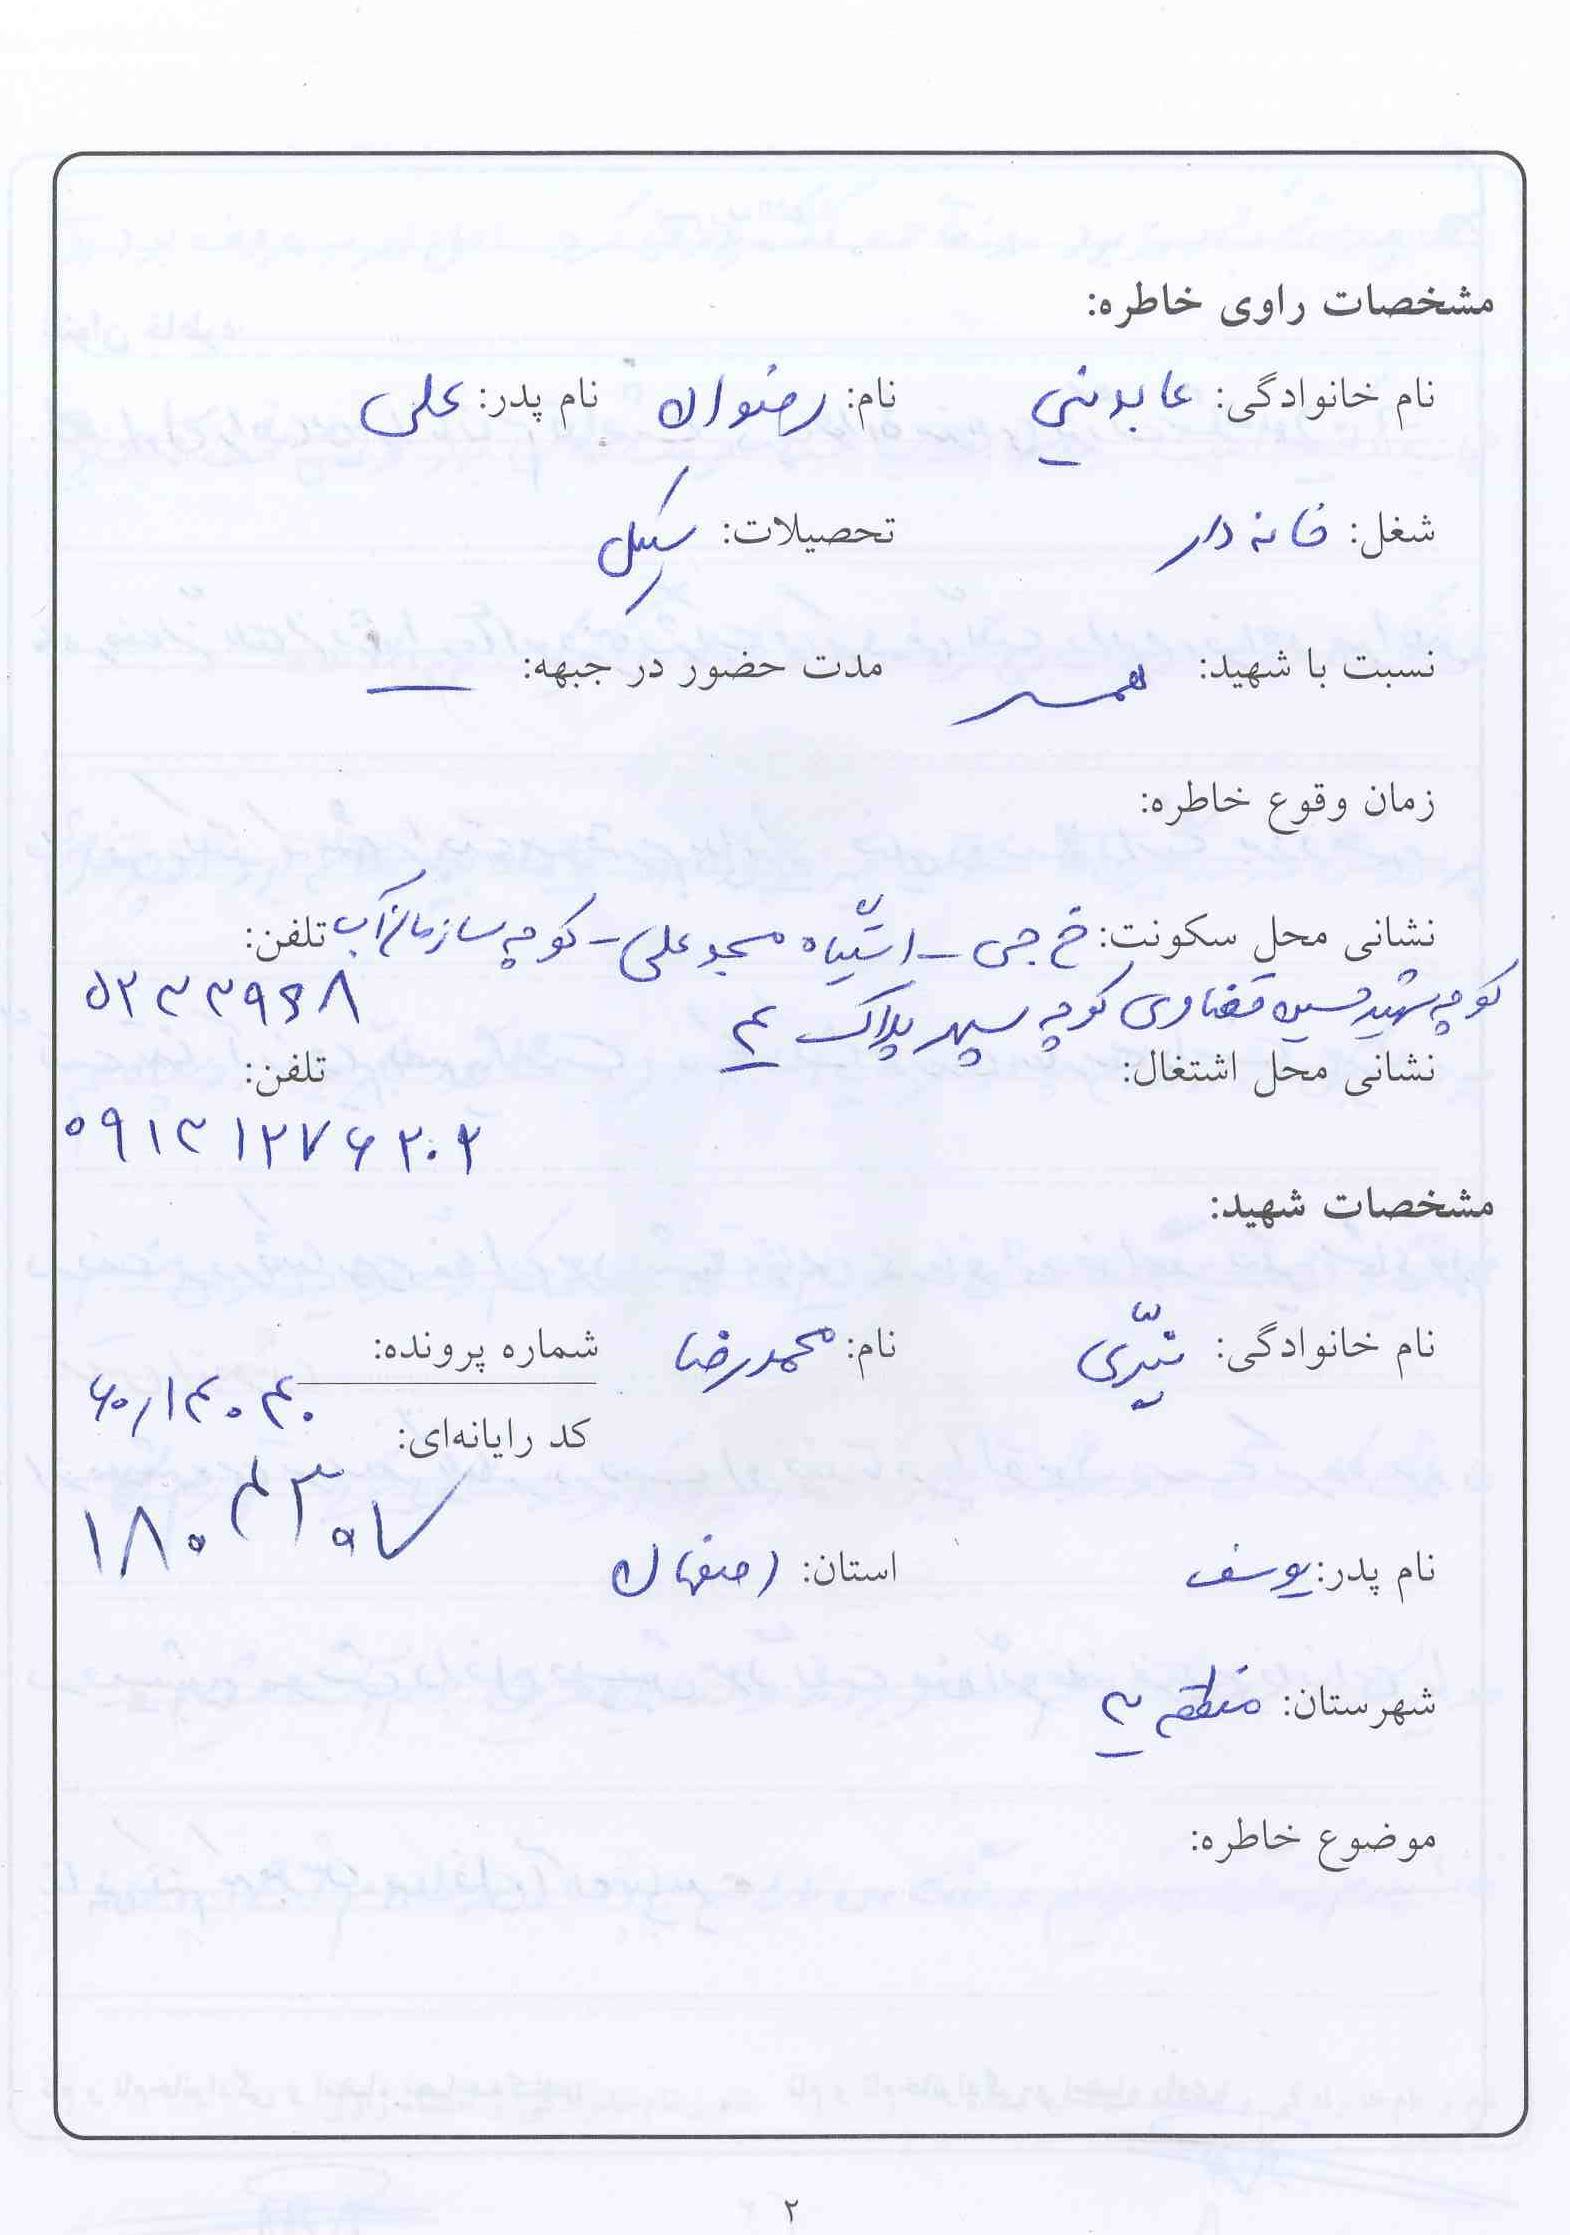 مشخصات راوی خاطره:
نام خانوادگی: عابدینی نام: رضوان نام پدر: علی
شغل: خانه دار تحصیلات: سیکل
نسبت با شهید: همسر مدت حضور در جبهه: —
زمان وقوع خاطره:
نشانی محل سکونت: خ جی - ایستگاه مسجد علی - کوچه سازمان آب تلفن:
کوچه شهید حسین قضاوی کوچه سپهر پلاک ۴ ۵۲۳۳۹۶۸
نشانی محل اشتغال: تلفن:
۰۹۱۳۱۲۷۶۲۰۲
مشخصات شهید:
نام خانوادگی: نیّری نام: محمدرضا شماره پرونده:
۶۰/۱۴۰۴۰
کد رایانه‌ای:
۱۸۰۴۳۰۷
نام پدر: یوسف استان: اصفهان
شهرستان: منطقه ۳
موضوع خاطره:
۲